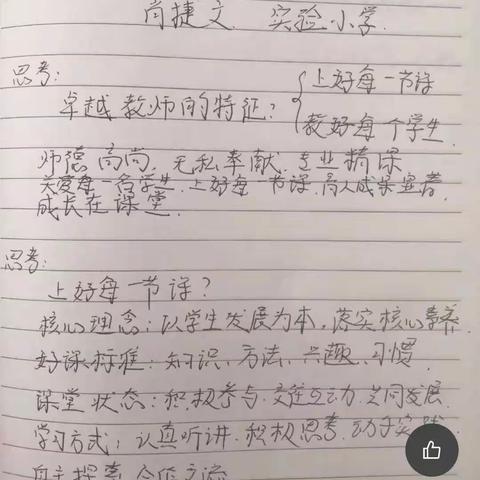 尚捷文 实验小学.
思考:
卓越教师的特征? { 上好每一节课
教好每个学生.
师德高尚, 无私奉献, 专业精深
关爱每一名学生. 上好每一节课. 育人成果显著.
成长在课堂.
思考:
上好每一节课?
核心理念: 以学生发展为本, 落实核心素养.
好课标准: 知识、方法、兴趣、习惯.
课堂状态: 积极参与. 交往互动. 共同发展.
学习方式: 认真听讲. 积极思考. 动手实践.
自主探索 合作交流